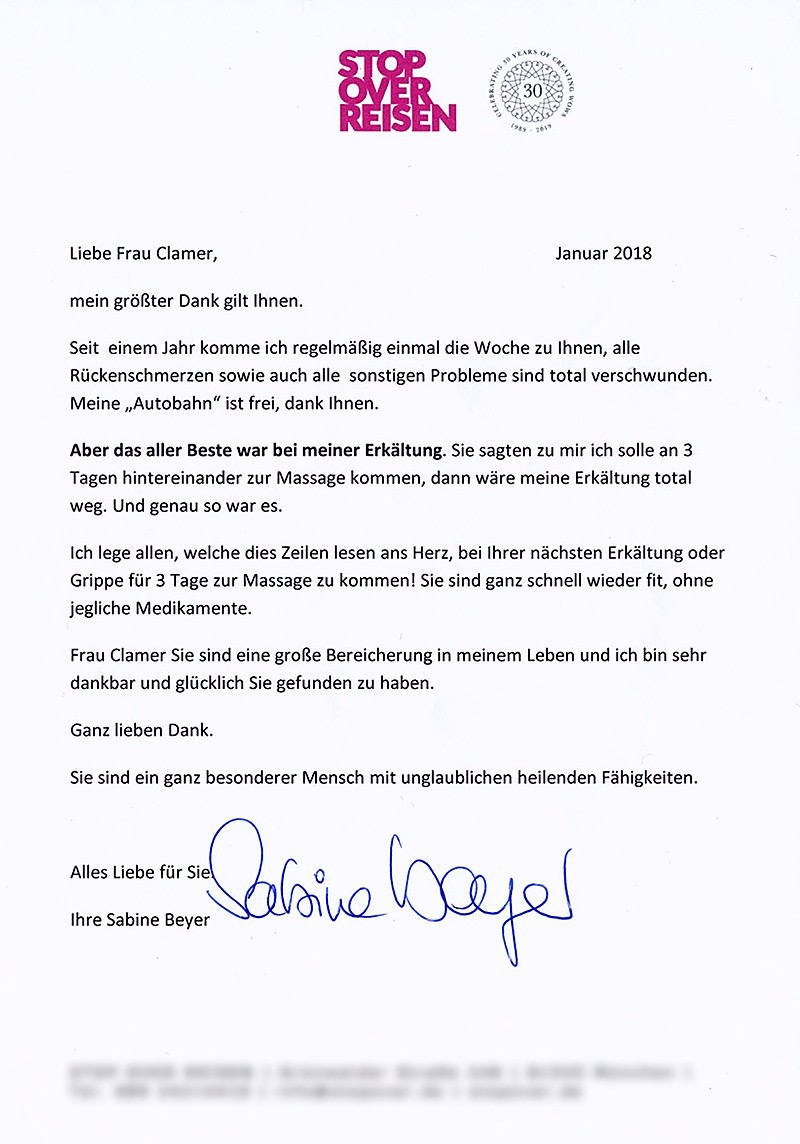 STOP
OVER
REISEN
CELEBRATING 30 YEARS OF CREATING WOWS
30
1989 – 2019
Liebe Frau Clamer, Januar 2018
mein größter Dank gilt Ihnen.
Seit einem Jahr komme ich regelmäßig einmal die Woche zu Ihnen, alle
Rückenschmerzen sowie auch alle sonstigen Probleme sind total verschwunden.
Meine „Autobahn“ ist frei, dank Ihnen.
Aber das aller Beste war bei meiner Erkältung. Sie sagten zu mir ich solle an 3
Tagen hintereinander zur Massage kommen, dann wäre meine Erkältung total
weg. Und genau so war es.
Ich lege allen, welche dies Zeilen lesen ans Herz, bei Ihrer nächsten Erkältung oder
Grippe für 3 Tage zur Massage zu kommen! Sie sind ganz schnell wieder fit, ohne
jegliche Medikamente.
Frau Clamer Sie sind eine große Bereicherung in meinem Leben und ich bin sehr
dankbar und glücklich Sie gefunden zu haben.
Ganz lieben Dank.
Sie sind ein ganz besonderer Mensch mit unglaublichen heilenden Fähigkeiten.
Alles Liebe für Sie
Sabine Beyer
Ihre Sabine Beyer